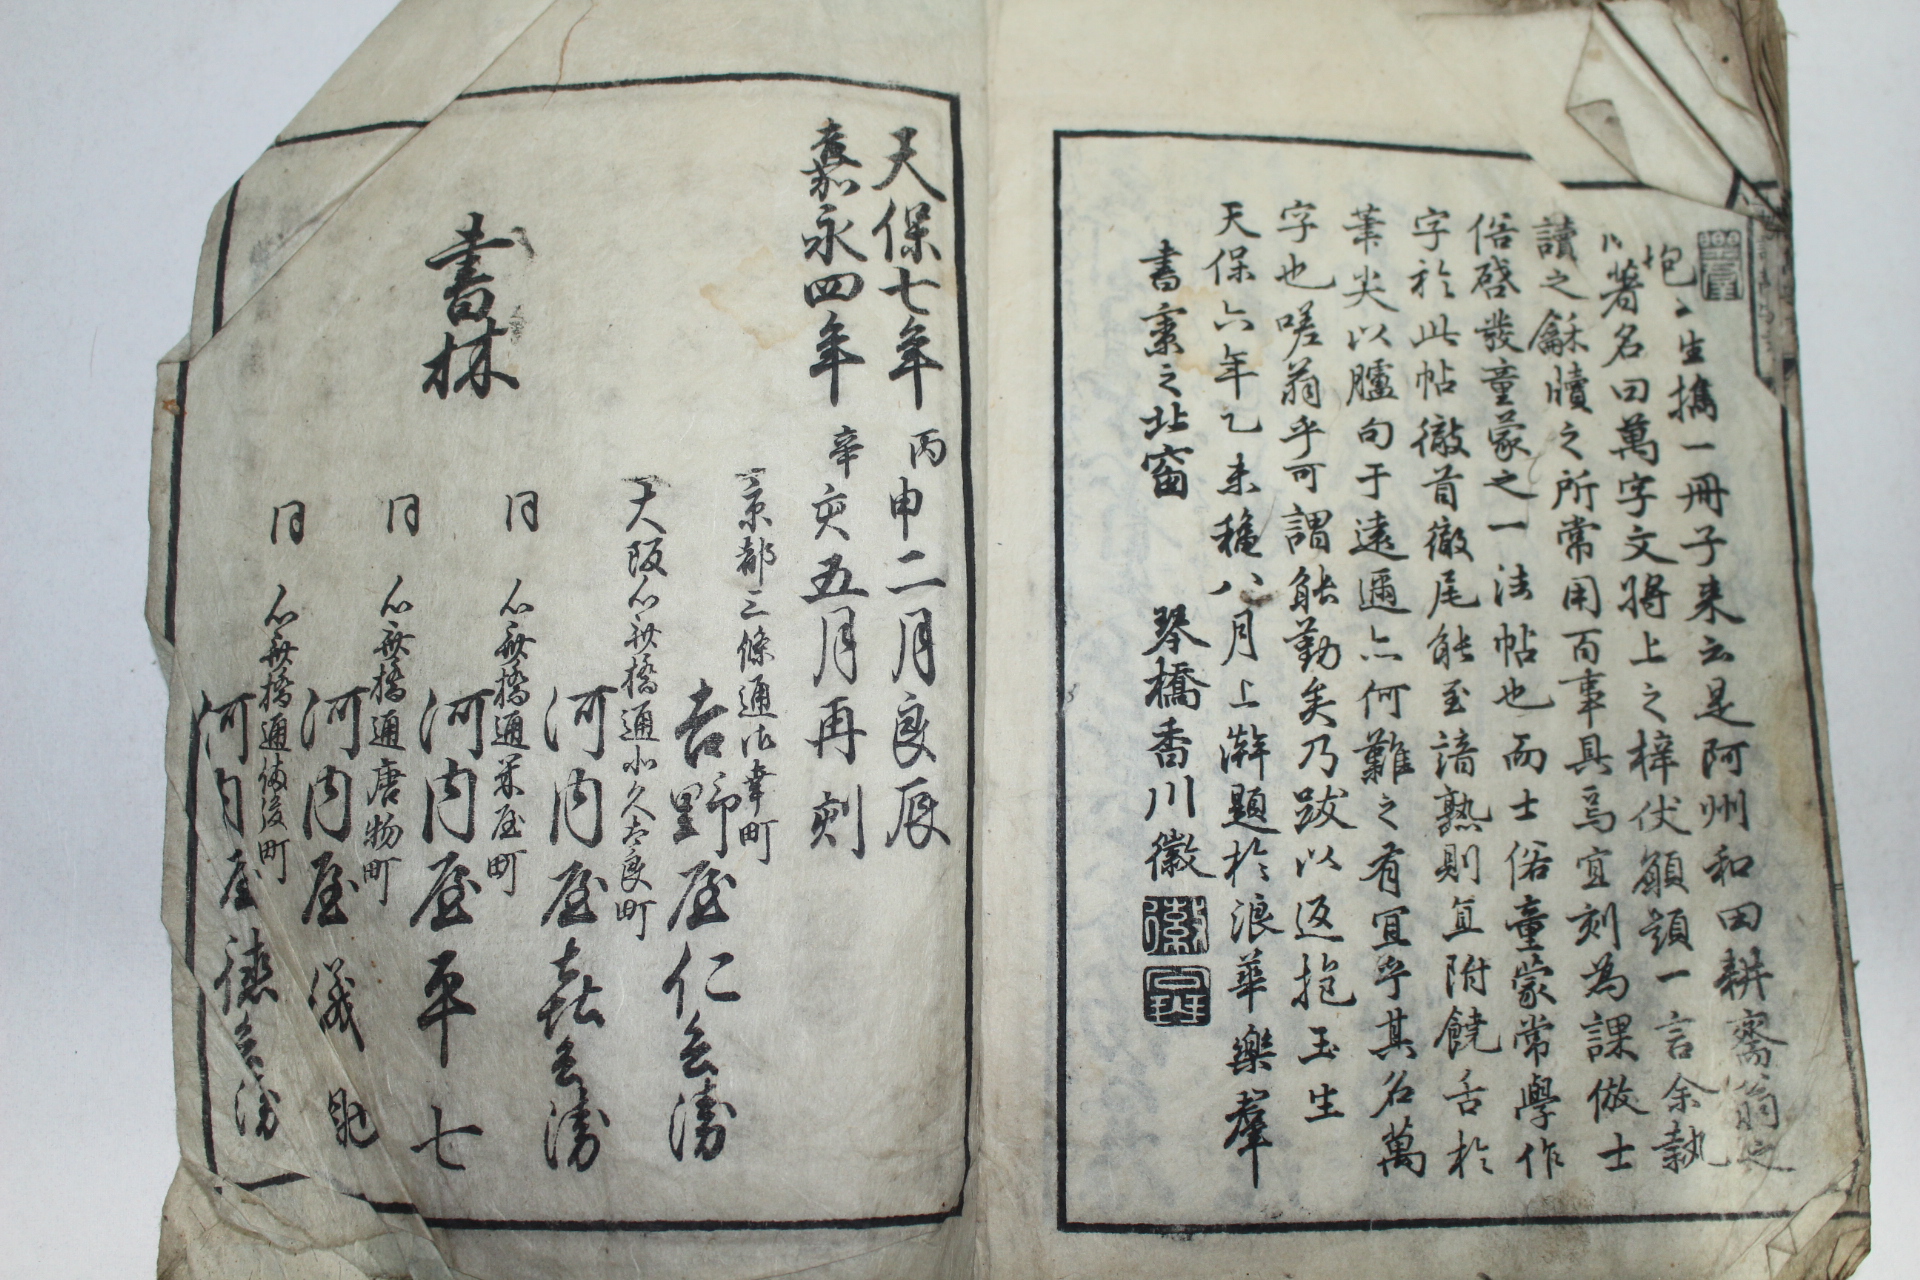 生擕一冊子来云是阿州和田耕齋翁之
著名曰萬字文將上之梓伏願題一言余執
讀之龢牘之所常用百事具焉宜刻為課倣士
俗啓發童蒙之一法帖也而士俗童蒙常學作
字於此帖徹首徹尾能至諳熟則宜附饒舌於
筆尖以臚句于遠邇亦何難之有宜乎其名萬
字也嗟翁乎可謂能勤矣乃跋以返抱玉生
天保六年乙未穐八月上澣題於浪華樂羣
書寮之北窗 琴橋香川徽
天保七年丙申二月良辰
嘉永四年辛亥五月再刻
京都三條通御幸町
吉野屋仁兵衛
大阪心斎橋通北久太良町
河内屋喜兵衛
同 心斎橋通米屋町
河内屋平七
同 心斎橋通唐物町
河内屋儀助
同 心斎橋通備後町
河内屋徳兵衛
書林